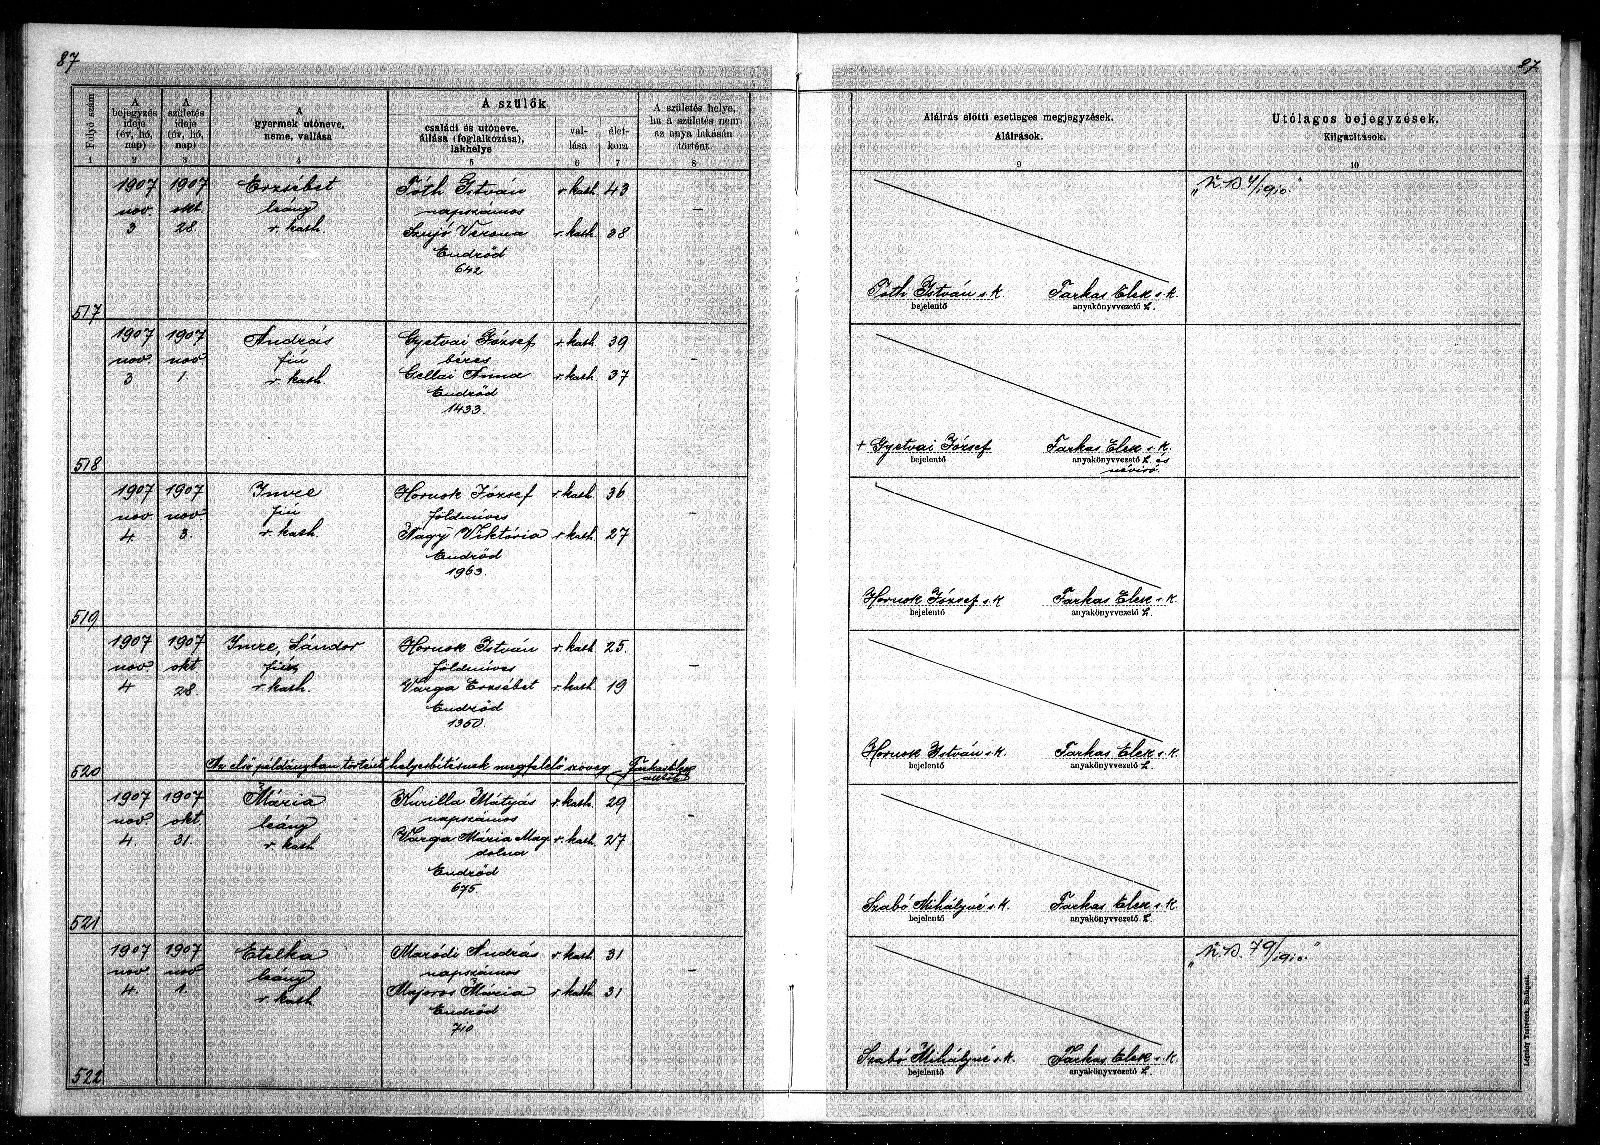 87
87
Folyó szám
A bejegyzés ideje (év, hó, nap)
A születés ideje (év, hó, nap)
A gyermek utóneve, neme, vallása
A szülők
családi és utóneve, állása (foglalkozása), lakhelye
vallása
életkora
A születés helye, ha a születés nem az anya lakásán történt.
Aláírás előtti esetleges megjegyzések.
Aláírások.
Utólagos bejegyzések.
Kiigazítások.
1 2 3 4 5 6 7 8 9 10
1907 1907 Erzsébet Tóth István r. kath. 43
nov. okt. leány napszámos —
3 28. r. kath. Szujó Verona r. kath. 38
Endrőd
642
517
Tóth István s. k. Farkas Elek s. k.
bejelentő anyakönyvvezető h.
1907 1907 András Gyetvai József r. kath. 39
nov. nov. fiú béres —
3 1. r. kath. Gellai Anna r. kath. 37
Endrőd
1433.
518
+ Gyetvai József Farkas Elek s. k.
bejelentő anyakönyvvezető h. és
névíró.
1907 1907 Imre Hornok József r. kath. 36
nov. nov. fiú földmíves —
4. 3. r. kath. Nagy Viktória r. kath. 27
Endrőd
1963.
519
Hornok József s. k. Farkas Elek s. k.
bejelentő anyakönyvvezető h.
1907 1907 Imre, Sándor Hornok István r. kath. 25.
nov. okt. fiú földmíves —
4 28. r. kath. Varga Erzsébet r. kath. 19
Endrőd
1350.
Az első példányban történt helyesbítésnek megfelelő szöveg Farkas Elek
520
Hornok István s. k. Farkas Elek s. k.
bejelentő anyakönyvvezető h.
1907 1907 Mária Kurilla Mátyás r. kath. 29
nov. okt. leány napszámos —
4. 31. r. kath. Varga Mária Mag- r. kath. 27
dolna
Endrőd
675.
521
Szabó Mihályné s. k. Farkas Elek s. k.
bejelentő anyakönyvvezető h.
1907 1907 Etelka Maródi András r. kath. 31
nov. nov. leány napszámos —
4. 1. r. kath. Majoros Mária r. kath. 31
Endrőd
710
522
Szabó Mihályné s. k. Farkas Elek s. k.
bejelentő anyakönyvvezető h.